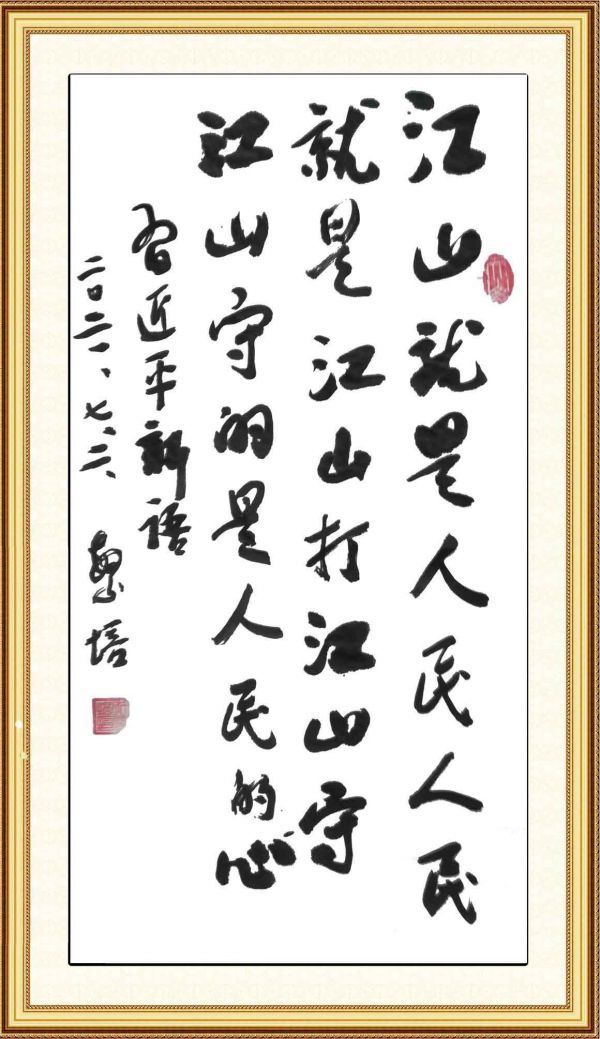 江山就是人民人民
就是江山打江山守
江山守的是人民的心
習近平新語
二〇二一、七、二、